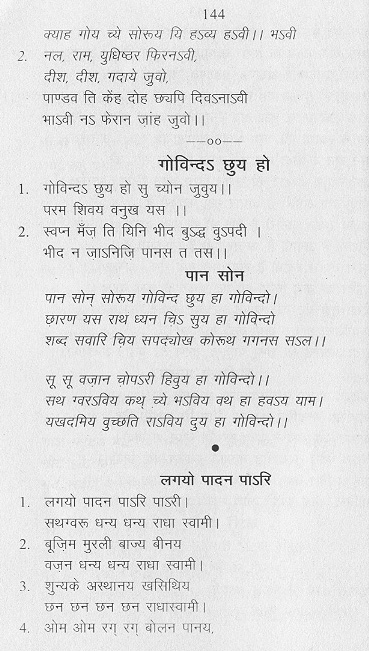 144
क्याह गोय च्ये सोरूय यि हऽव्य हऽवी।। भऽवी
2. नल, राम, युधिष्ठर फिरनऽवी,
दीश, दीश, गदाये जुवो,
पाण्डव ति केंह दोह छ्यपि दिवऽनाऽवी
भाऽवी नऽ फेरान ज़ांह जुवो।।
––oo––
गोविन्दऽ छुय हो
1. गोविन्दऽ छुय हो सु च्योन जुवुय।।
परम शिवय वनुख यस ।।
2. स्वप्न मँज़ ति यिनि भीद बुऽद्ध वुऽपदी ।
भीद न जाऽनिजि पानस त तस।।
पान सोन
पान सोन् सोरूय गोविन्द छुय हा गोविन्दो।
छारण यस राथ ध्यन चिऽ सुय हा गोविन्दो
शब्द सवारि च़िय सपद्योख कोरूथ गगनस सऽल।।
सू सू वज़ान च़ोपऽरी हिवुय हा गोविन्दो।।
सथ ग्वरऽविय कथ् च्ये भऽविय वथ हा हवऽय याम।
यखदमिय वुच्छति राऽविय दुय हा गोविन्दो।।
लगयो पादन पाऽरि
1. लगयो पादन पाऽरि पाऽरी।
सथग्वरू धन्य धन्य राधा स्वामी।
2. बूज़िम मुरली बाज्य बीनय
वज़न धन्य धन्य राधा स्वामी।
3. शुन्यके अस्थानय खसिथिय
छन छन छन छन राधास्वामी।
4. ओम ओम रग् रग् बोलन पानय,